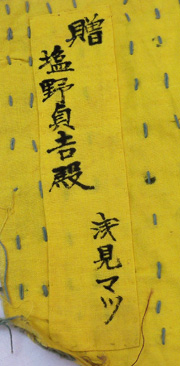 贈
塩野貞吉殿
浅見マツ